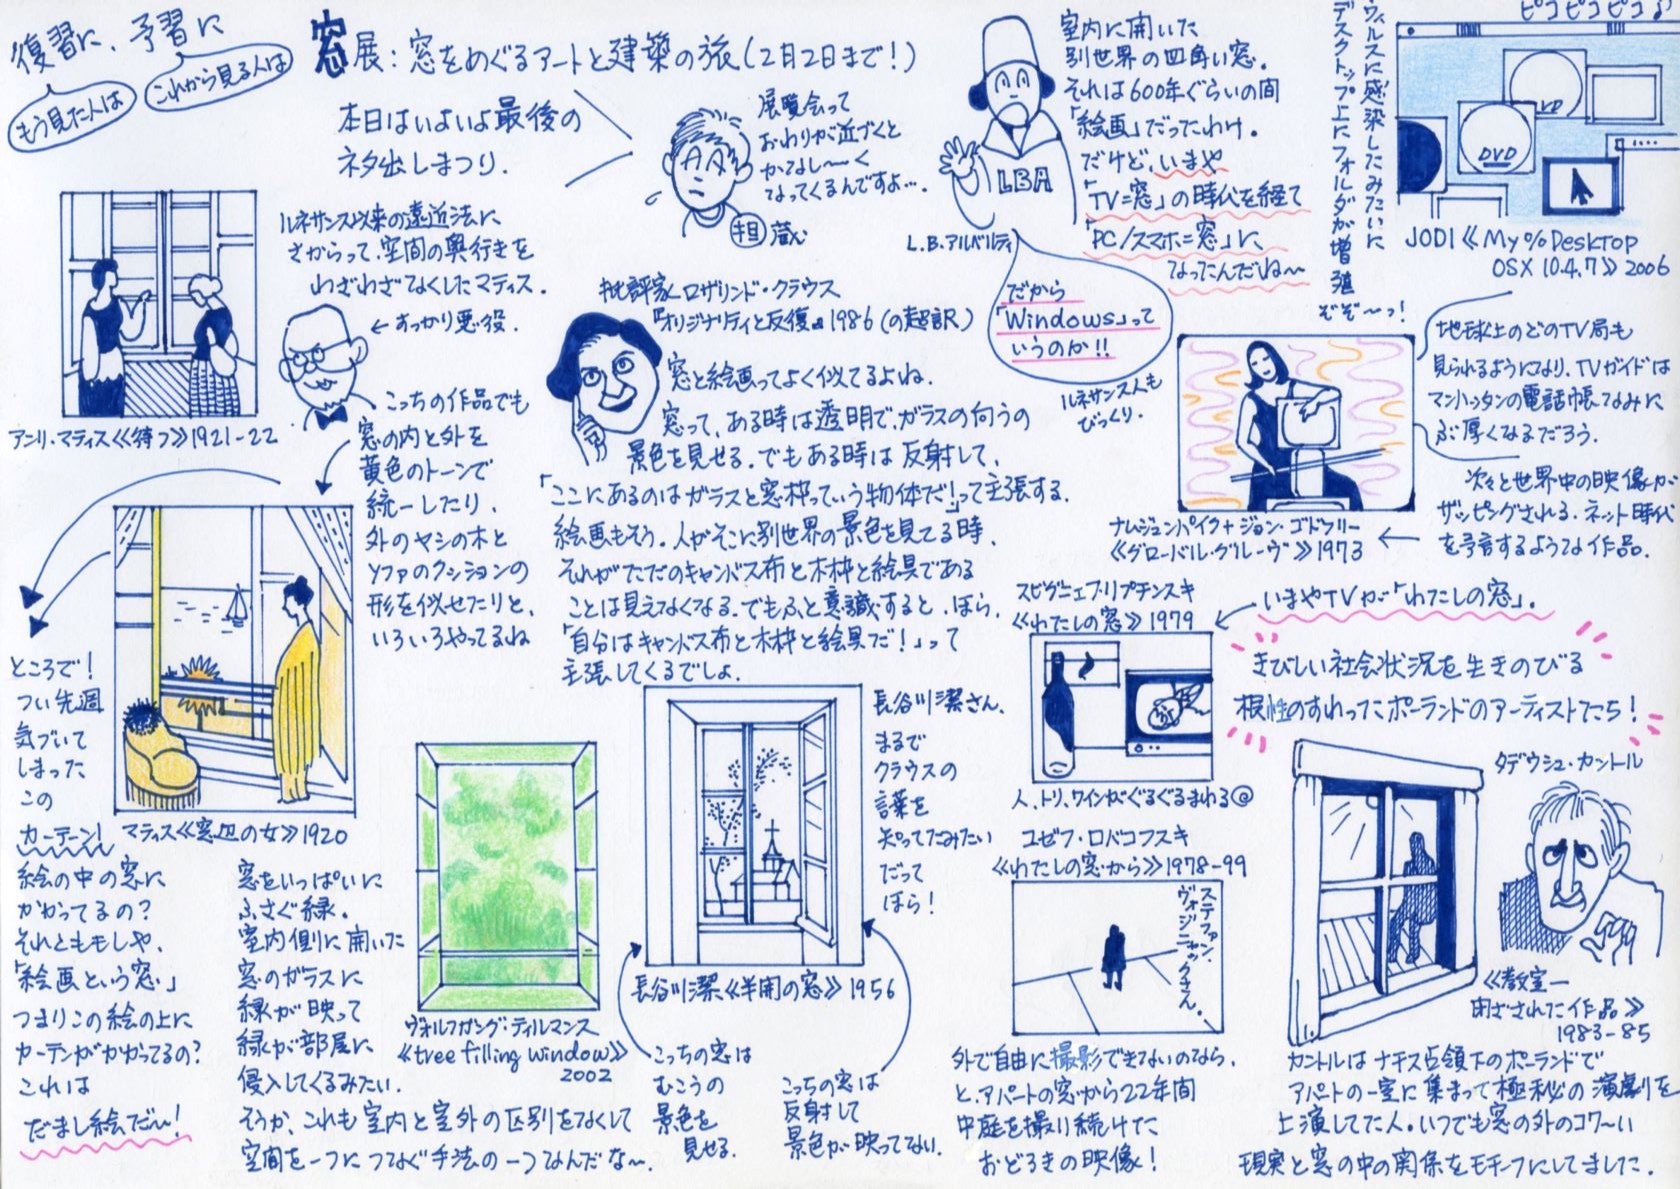 復習に、予習に
もう見た人は
これから見る人は
窓展:窓をめぐるアートと建築の旅(2月2日まで!)
本日はいよいよ最後の
ネタ出しまつり.
展覧会って
おわりが近づくと
かなし〜く
なってくるんですよ….
担 蔵
LBA
L.B.アルベルティ
室内に開いた
別世界の四角い窓.
それは600年ぐらいの間
「絵画」だったわけ.
だけど,いまや
「TV=窓」の時代を経て
「PC/スマホ=窓」に
なったんだね〜
だから
「Windows」って
いうのか!!
ルネサンス人も
びっくり.
ウィルスに感染したみたいに
デスクトップ上にフォルダが増殖
ぞぞ〜っ!
ピコピコピコ♪
DVD
DVD
JODI《My%Desktop
OSX 10.4.7》2006
ルネサンス以来の遠近法に
さからって,空間の奥行きを
わざわざなくしたマティス.
←すっかり悪役.
アンリ・マティス《待つ》1921-22
こっちの作品でも
窓の内と外を
黄色のトーンで
統一したり,
外のヤシの木と
ソファのクッションの
形を似せたりと,
いろいろやってるね
マティス《窓辺の女》1920
ところで!
つい先週
気づいて
しまった
この
カーテン!
絵の中の窓に
かかってるの?
それとももしや,
「絵画という窓」
つまりこの絵の上に
カーテンがかかってるの?
これは
だまし絵だ〜!
批評家ロザリンド・クラウス
『オリジナリティと反復』1986(の超訳)
窓と絵画ってよく似てるよね.
窓って,ある時は透明で,ガラスの向うの
景色を見せる.でもある時は反射して,
「ここにあるのはガラスと窓枠っていう物体だ!」って主張する.
絵画もそう.人がそこに別世界の景色を見てる時,
それがただのキャンバス布と木枠と絵具である
ことは見えなくなる.でもふと意識すると,ほら,
「自分はキャンバス布と木枠と絵具だ!」って
主張してくるでしょ.
窓をいっぱいに
ふさぐ緑.
室内側に開いた
窓のガラスに
緑が映って
緑が部屋に
侵入してくるみたい.
そうか,これも室内と室外の区別をなくして
空間を一つにつなぐ手法の一つなんだな〜.
ヴォルフガング・ティルマンス
《tree filling window》
2002
長谷川潔さん,
まるで
クラウスの
言葉を
知ってたみたい
だって
ほら!
長谷川潔《半開の窓》1956
こっちの窓は
むこうの
景色を
見せる.
こっちの窓は
反射して
景色が映ってない.
地球上のどのTV局も
見られるようになり,TVガイドは
マンハッタンの電話帳なみに
ぶ厚くなるだろう.
次々と世界中の映像が
ザッピングされる.ネット時代
を予言するような作品.
ナムジュン・パイク+ジョン・ゴドフリー
《グローバル・グルーヴ》1973
いまやTVが「わたしの窓」.
ズビグニェフ・リプチンスキ
《わたしの窓》1979
人,トリ,ワインがぐるぐるまわる@
きびしい社会状況を生きのびる
根性のすわったポーランドのアーティストたち!
ユゼフ・ロバコフスキ
《わたしの窓から》1978-99
ステファン,
ヴォジニャックさん.
外で自由に撮影できないのなら,
と,アパートの窓から22年間
中庭を撮り続けた
おどろきの映像!
タデウシュ・カントル
《教室―
閉ざされた作品》
1983-85
カントルはナチス占領下のポーランドで
アパートの一室に集まって極秘の演劇を
上演してた人.いつでも窓の外のコワ〜い
現実と窓の中の関係をモチーフにしてました.